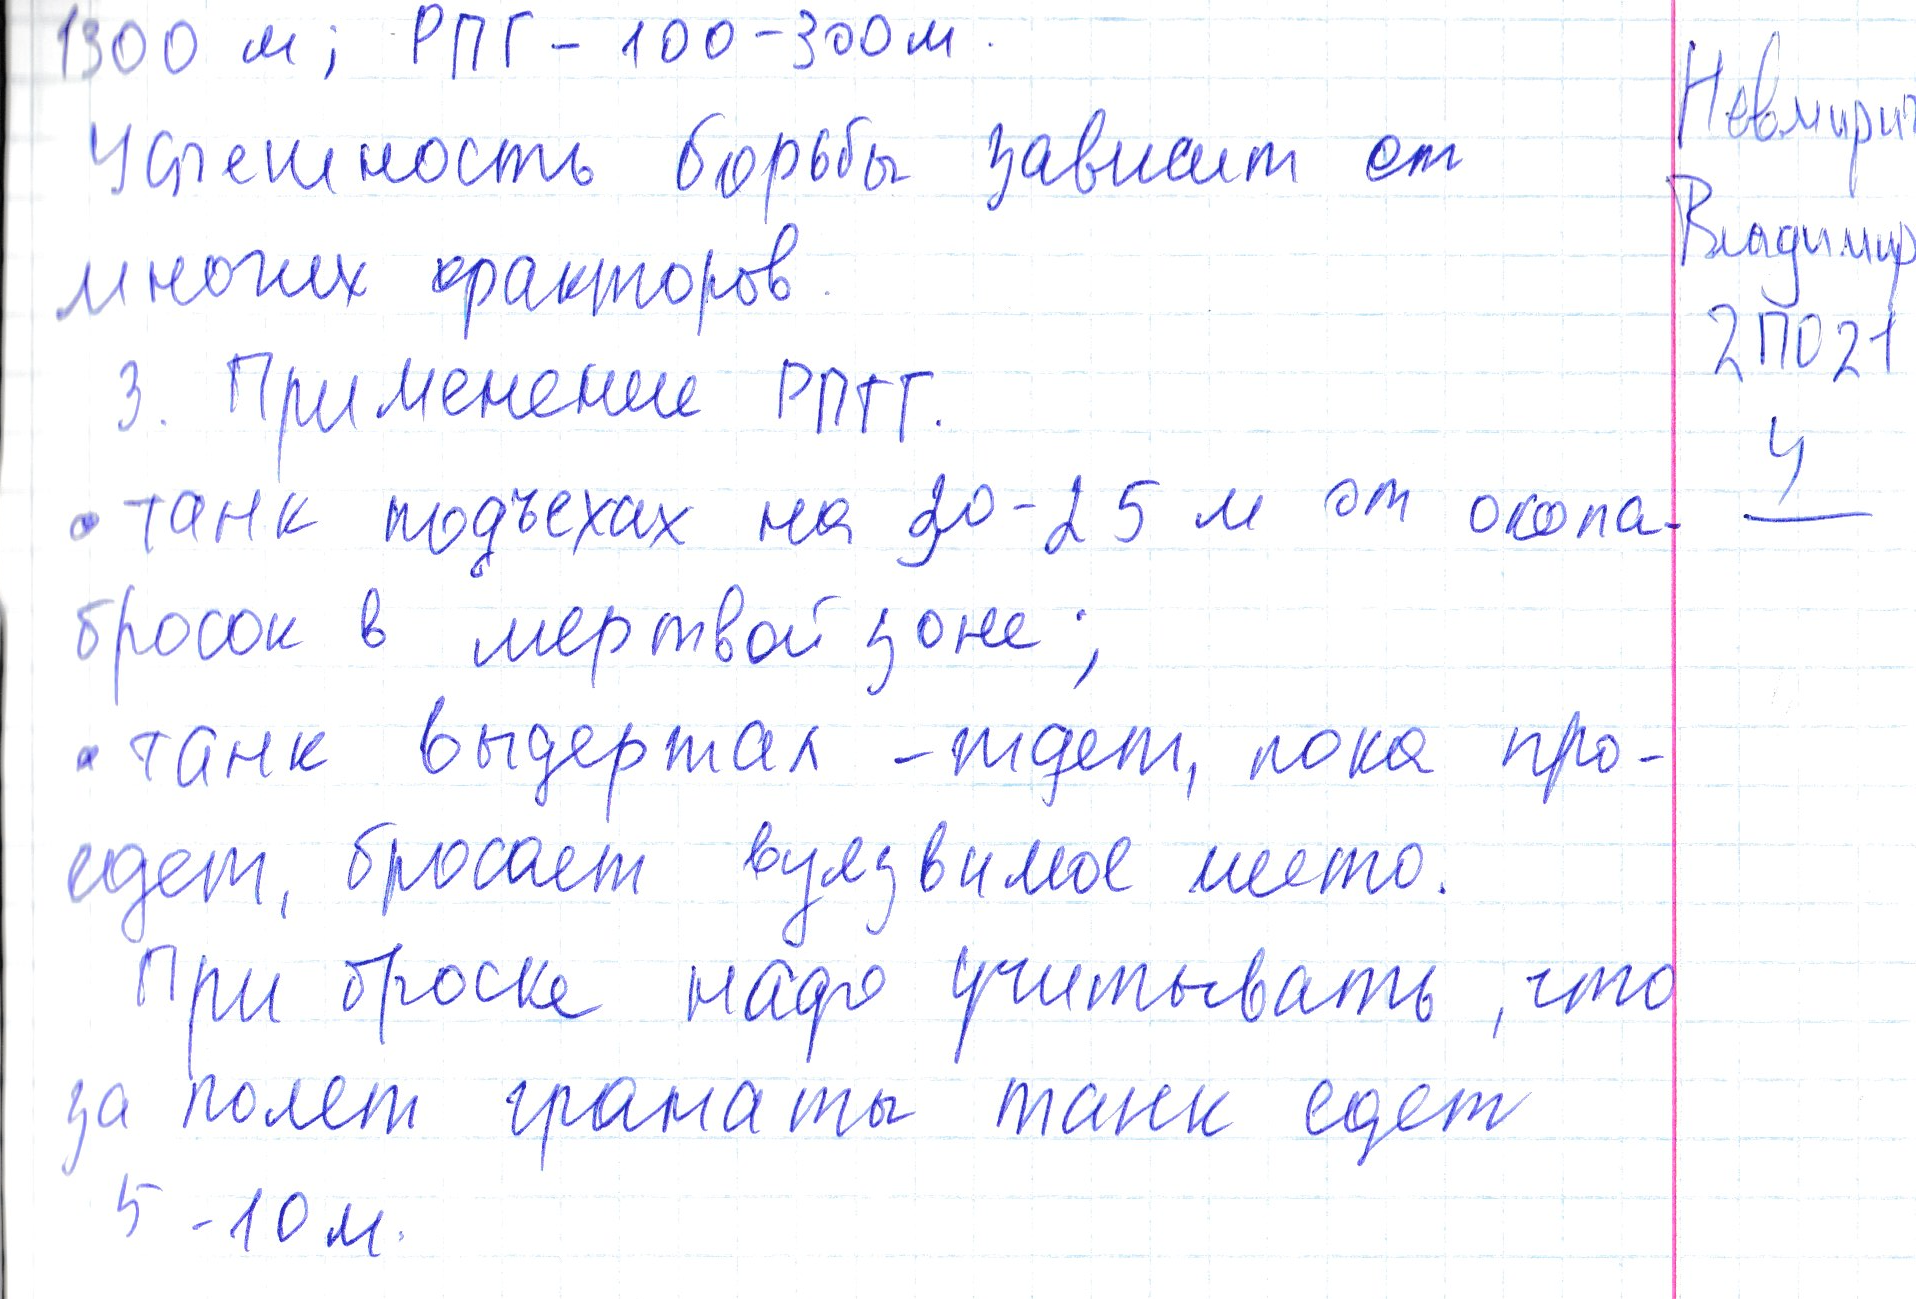 1300 м; РПГ - 100-300м.
Успешность борьбы зависит от
многих факторов.
3. Применение РПТГ.
• танк подъехал на 20-25 м от окопа-
бросок в мертвой зоне;
• танк выдержал - ждет, пока про-
едет, бросает в уязвимое место.
При броске надо учитывать, что
за полет гранаты танк едет
5 - 10 м.
Невмирич
Владимир
2ПО21
4